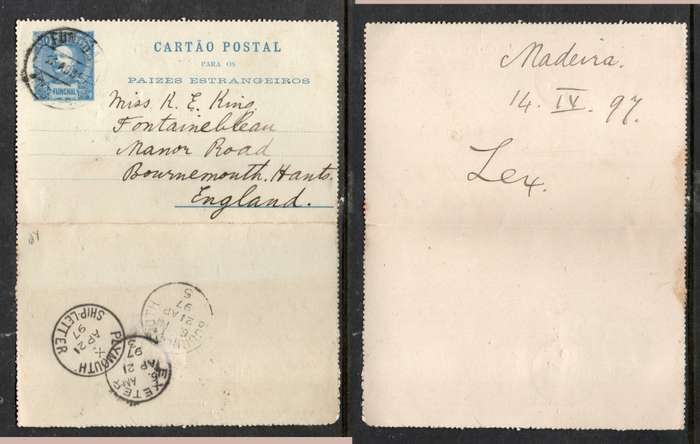 FUNCHAL
CARTÃO POSTAL
PARA OS
PAIZES ESTRANGEIROS
Miss K. E. King,
Fontainebleau
Manor Road
Bournemouth. Hants.
England.
PLYMOUTH
SHIP-LETTER
X
AP 21
97
EXETER
AM
AP 21
97
21 AP
97
5
Madeira.
14. IV. 97.
Lex.